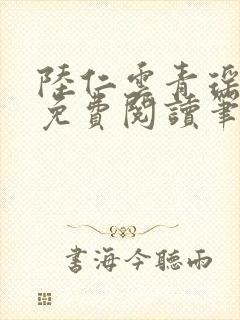 陸仁雲青瑶
免費閱讀筆
書海今聽雨